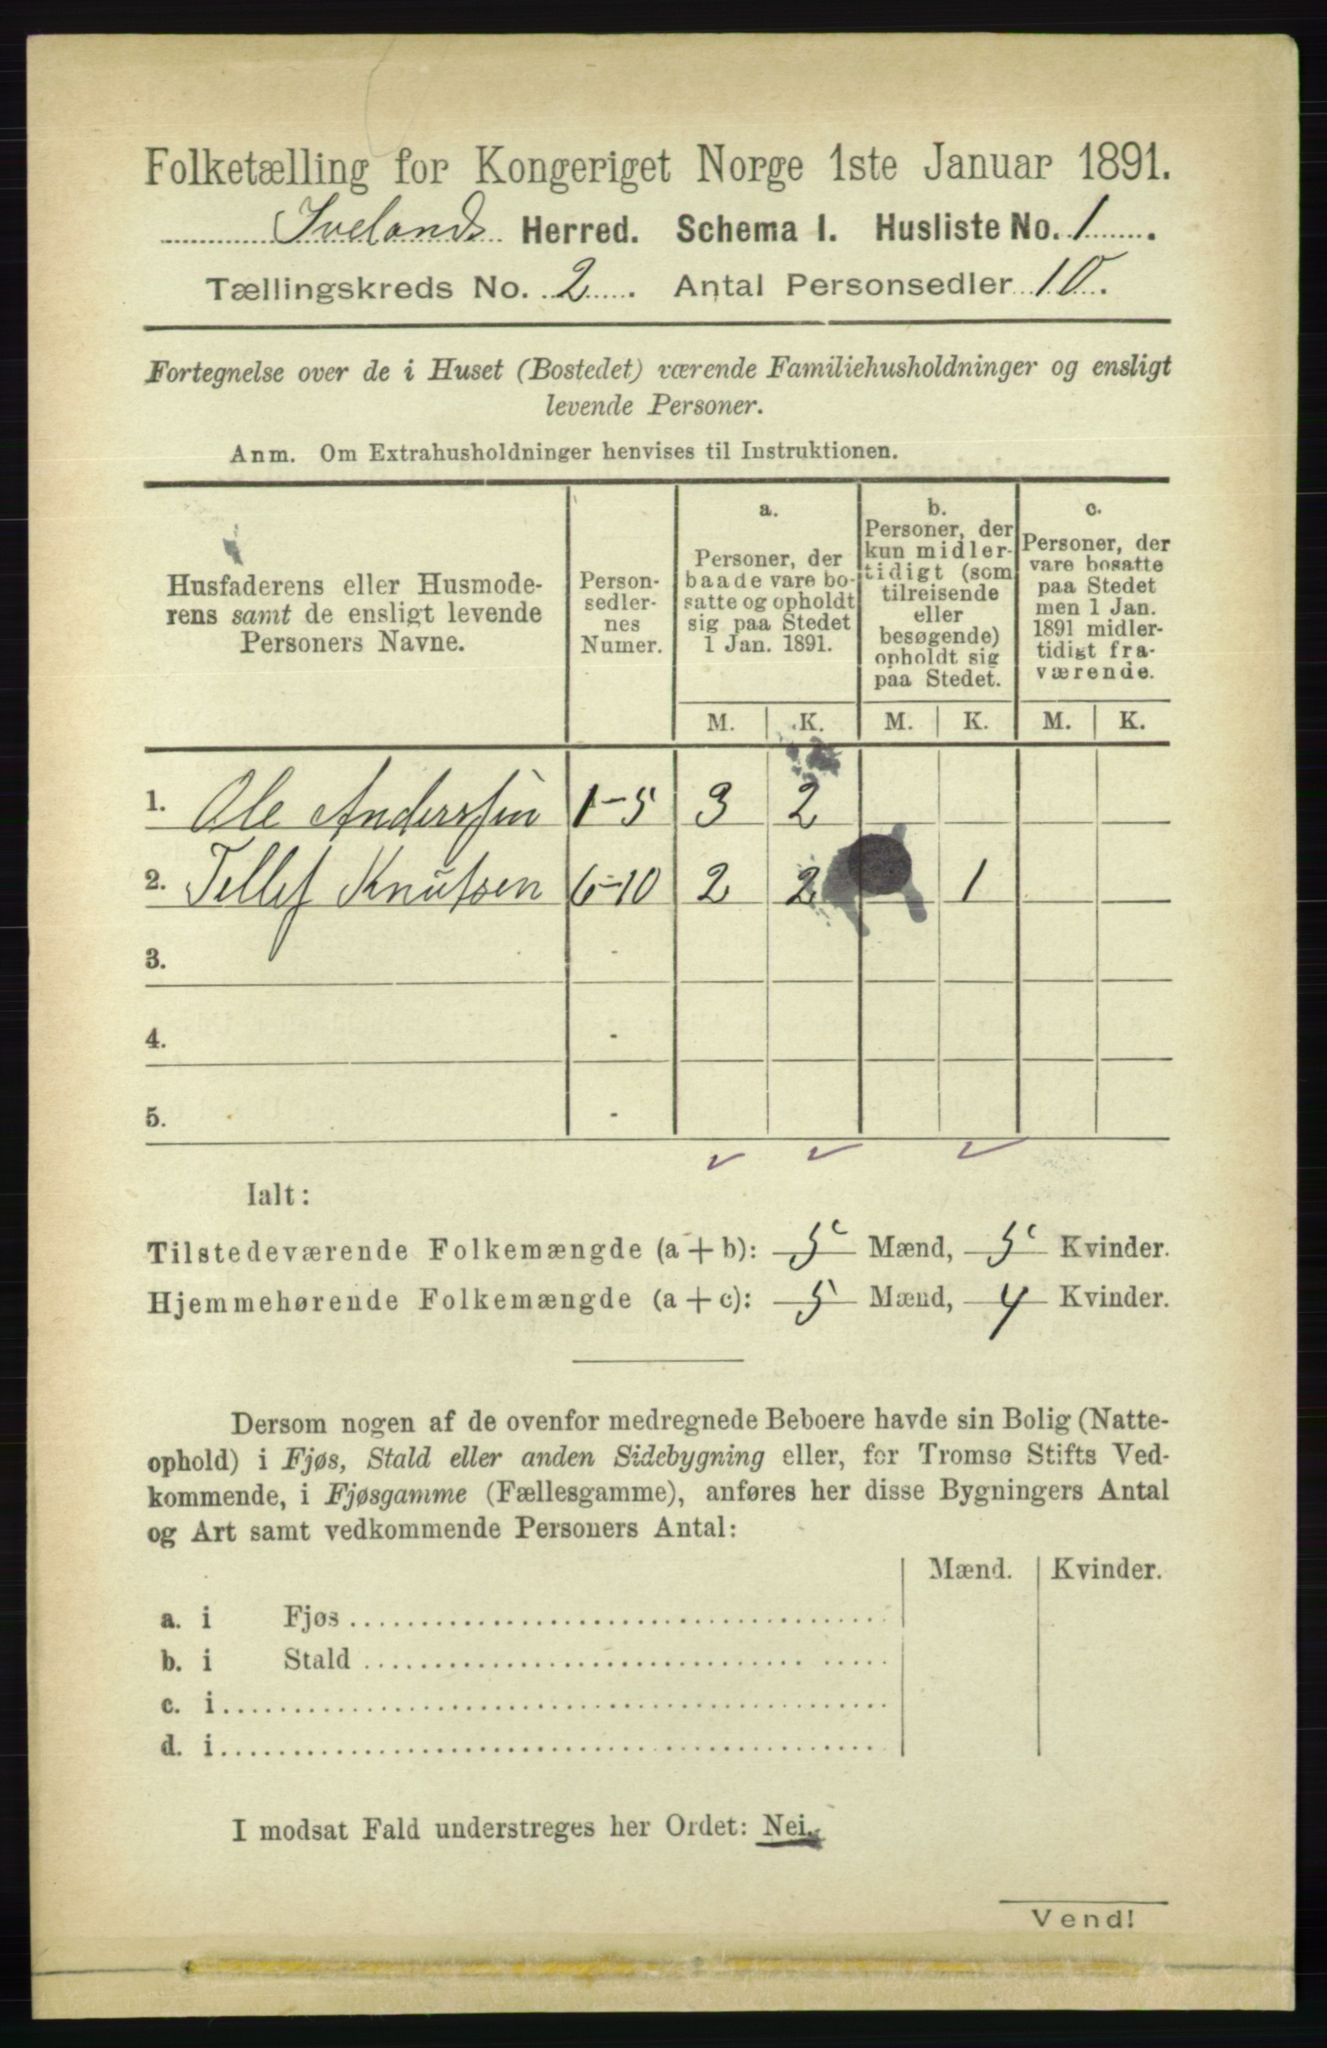 Folketælling for Kongeriget Norge 1ste Januar 1891.
Ivelands Herred. Schema I. Husliste No. 1.
Tællingskreds No. 2. Antal Personsedler 10.
Fortegnelse over de i Huset (Bostedet) værende Familiehusholdninger og ensligt
levende Personer.
Anm. Om Extrahusholdninger henvises til Instruktionen.
Husfaderens eller Husmode-
rens samt de ensligt levende
Personers Navne.
Person-
sedler-
nes
Numer.
a.
Personer, der
baade vare bo-
satte og opholdt
sig paa Stedet
1 Jan. 1891.
b.
Personer, der
kun midler-
tidigt (som
tilreisende
eller
besøgende)
opholdt sig
paa Stedet.
c.
Personer, der
vare bosatte
paa Stedet
men 1 Jan.
1891 midler-
tidigt fra-
værende.
M. K. M. K. M. K.
1. Ole Anderssen 1-5 3 2
2. Tellef Knutsen 6-10 2 2 1
3. -
4. -
5. -
Ialt:
Tilstedeværende Folkemængde (a + b): 5 Mænd, 5 Kvinder.
Hjemmehørende Folkemængde (a + c): 5 Mænd, 4 Kvinder.
Dersom nogen af de ovenfor medregnede Beboere havde sin Bolig (Natte-
ophold) i Fjøs, Stald eller anden Sidebygning eller, for Tromsø Stifts Ved-
kommende, i Fjøsgamme (Fællesgamme), anføres her disse Bygningers Antal
og Art samt vedkommende Personers Antal:
Mænd. Kvinder.
a. i Fjøs
b. i Stald
c. i
d. i
I modsat Fald understreges her Ordet: Nei.
Vend!